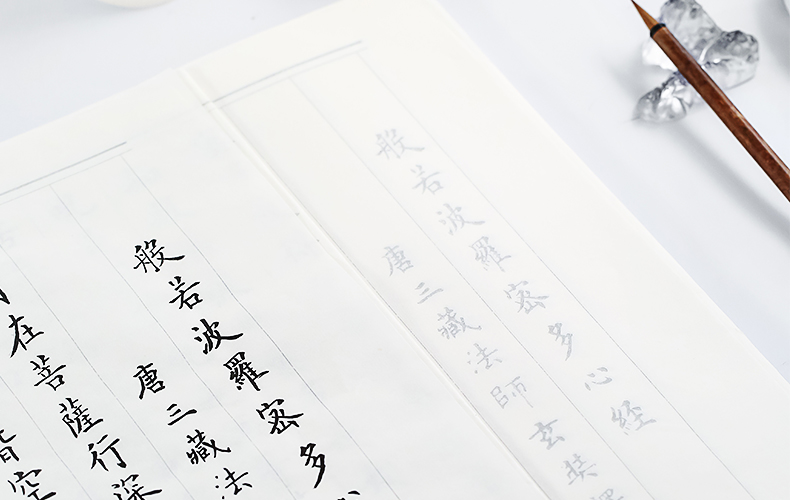 般若波羅密多心經
唐三藏法師玄奘
般若波羅密多
唐三藏法
在菩薩行深
皆空